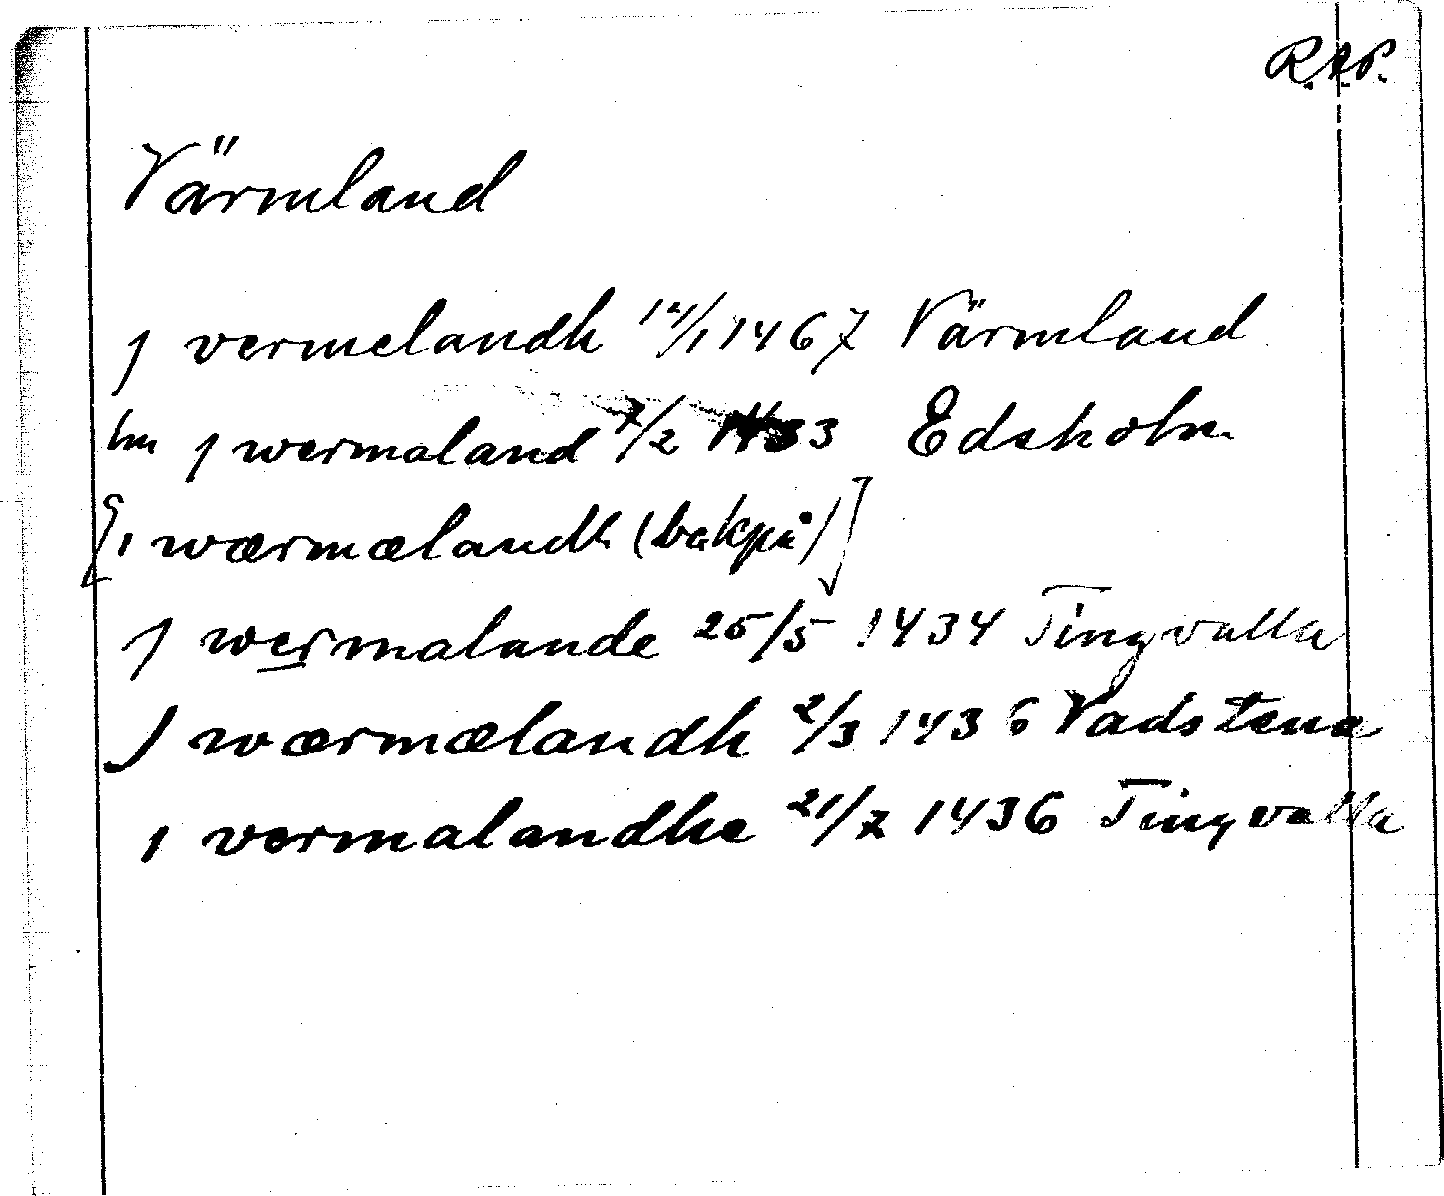 R.A.P.
Värmland
j vermelandh 12/1 1467 Värmland
hm j wermaland 7/2 1433 Edsholm
[i wærmælandh (bakpå)]
j wermalande 25/5 1434 Tingvalla
J wærmælandh 2/3 1436 Vadstena
i vermalandhe 21/7 1436 Tingvalla